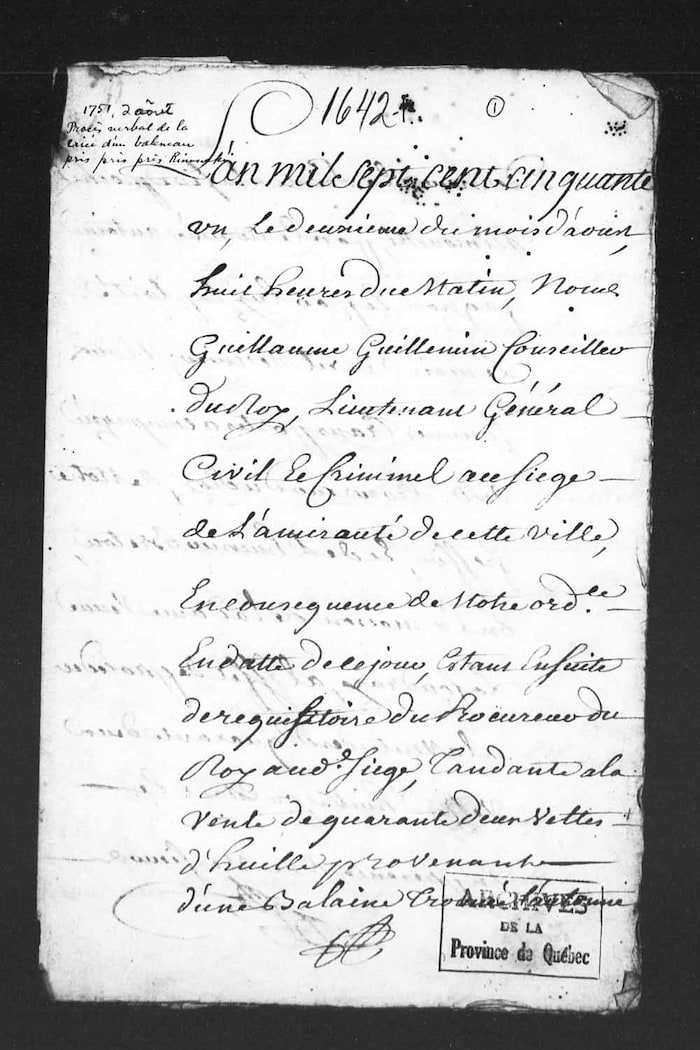 1642
1
1751, 2 aôut
Procès verbal de la
criée d'un baleineau
pris pris près Rimouski
L'an mil sept cent cinquante
un, Le deuxieme du mois d'aoust,
huit heures du Matin, Nous
Guillaume Guillemin Conseiller
du Roy, Lieutenant Général
Civil Et Criminel au Siege
de L'amirauté de cette Ville,
En consequence de Notre ord.ce
En datte de ce jour, Estant Ensuite
de requisitoire du Procureur du
Roy aud. Siege, Tandante a la
Vente de quarante deux Veltes
d'huille provenante
d'une Balaine Trouvée
ARCHIVES
DE LA
Province de Québec